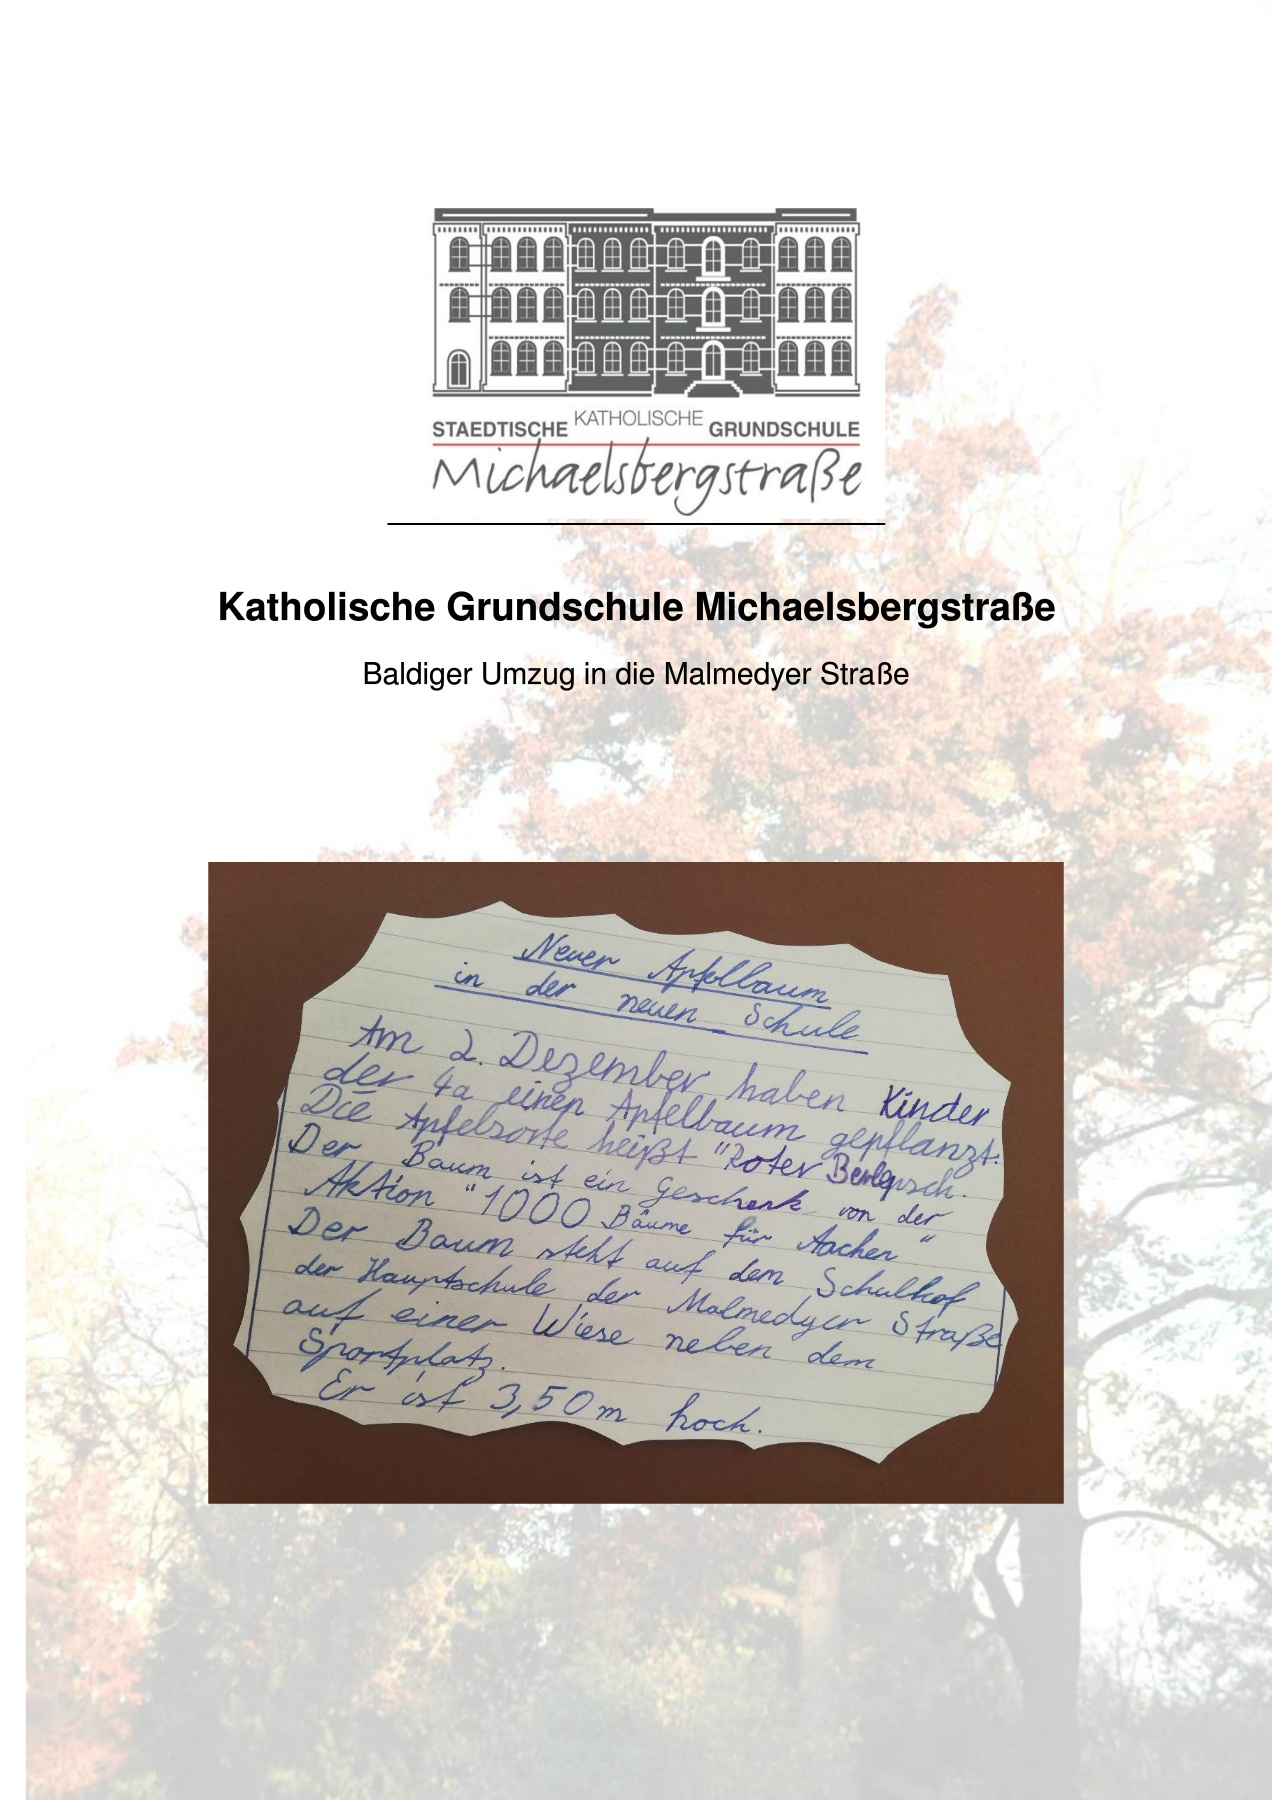 STAEDTISCHE KATHOLISCHE GRUNDSCHULE
Michaelsbergstraße
Katholische Grundschule Michaelsbergstraße
Baldiger Umzug in die Malmedyer Straße
Neuer Apfelbaum
in der neuen Schule
Am 2. Dezember haben Kinder
der 4a einen Apfelbaum gepflanzt.
Die Apfelsorte heißt "Roter
Der Baum ist ein Geschenk von der
Aktion "1000 Bäume für Aachen"
Der Baum steht auf dem Schulhof
der Hauptschule der Malmedyer Straße
auf einer Wiese neben dem
Sportplatz.
Er ist 3,50m hoch.